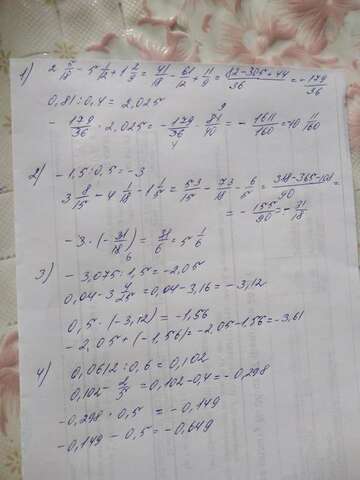 1) 2 5/18 - 5 1/12 + 1 2/9 = 41/18 - 61/12 + 11/9 = (82-305+44)/36 = -179/36
0,81 : 0,4 = 2,025
- 179/36 · 2,025 = - 179/36 · 81/40 = - 1611/160 = 10 11/160
9
4
2) -1,5 : 0,5 = -3
3 8/15 - 4 1/18 - 1 1/5 = 53/15 - 73/18 - 6/5 = (318-365-108)/90 =
= - 155/90 = - 31/18
-3 · (- 31/18) = 31/6 = 5 1/6
6
3) - 3,075 : 1,5 = -2,05
0,04 - 3 4/25 = 0,04 - 3,16 = -3,12
0,5 · (-3,12) = -1,56
-2,05 + (-1,56) = -2,05 - 1,56 = -3,61
4) 0,0612 : 0,6 = 0,102
0,102 - 2/5 = 0,102 - 0,4 = -0,298
-0,298 · 0,5 = -0,149
-0,149 - 0,5 = -0,649